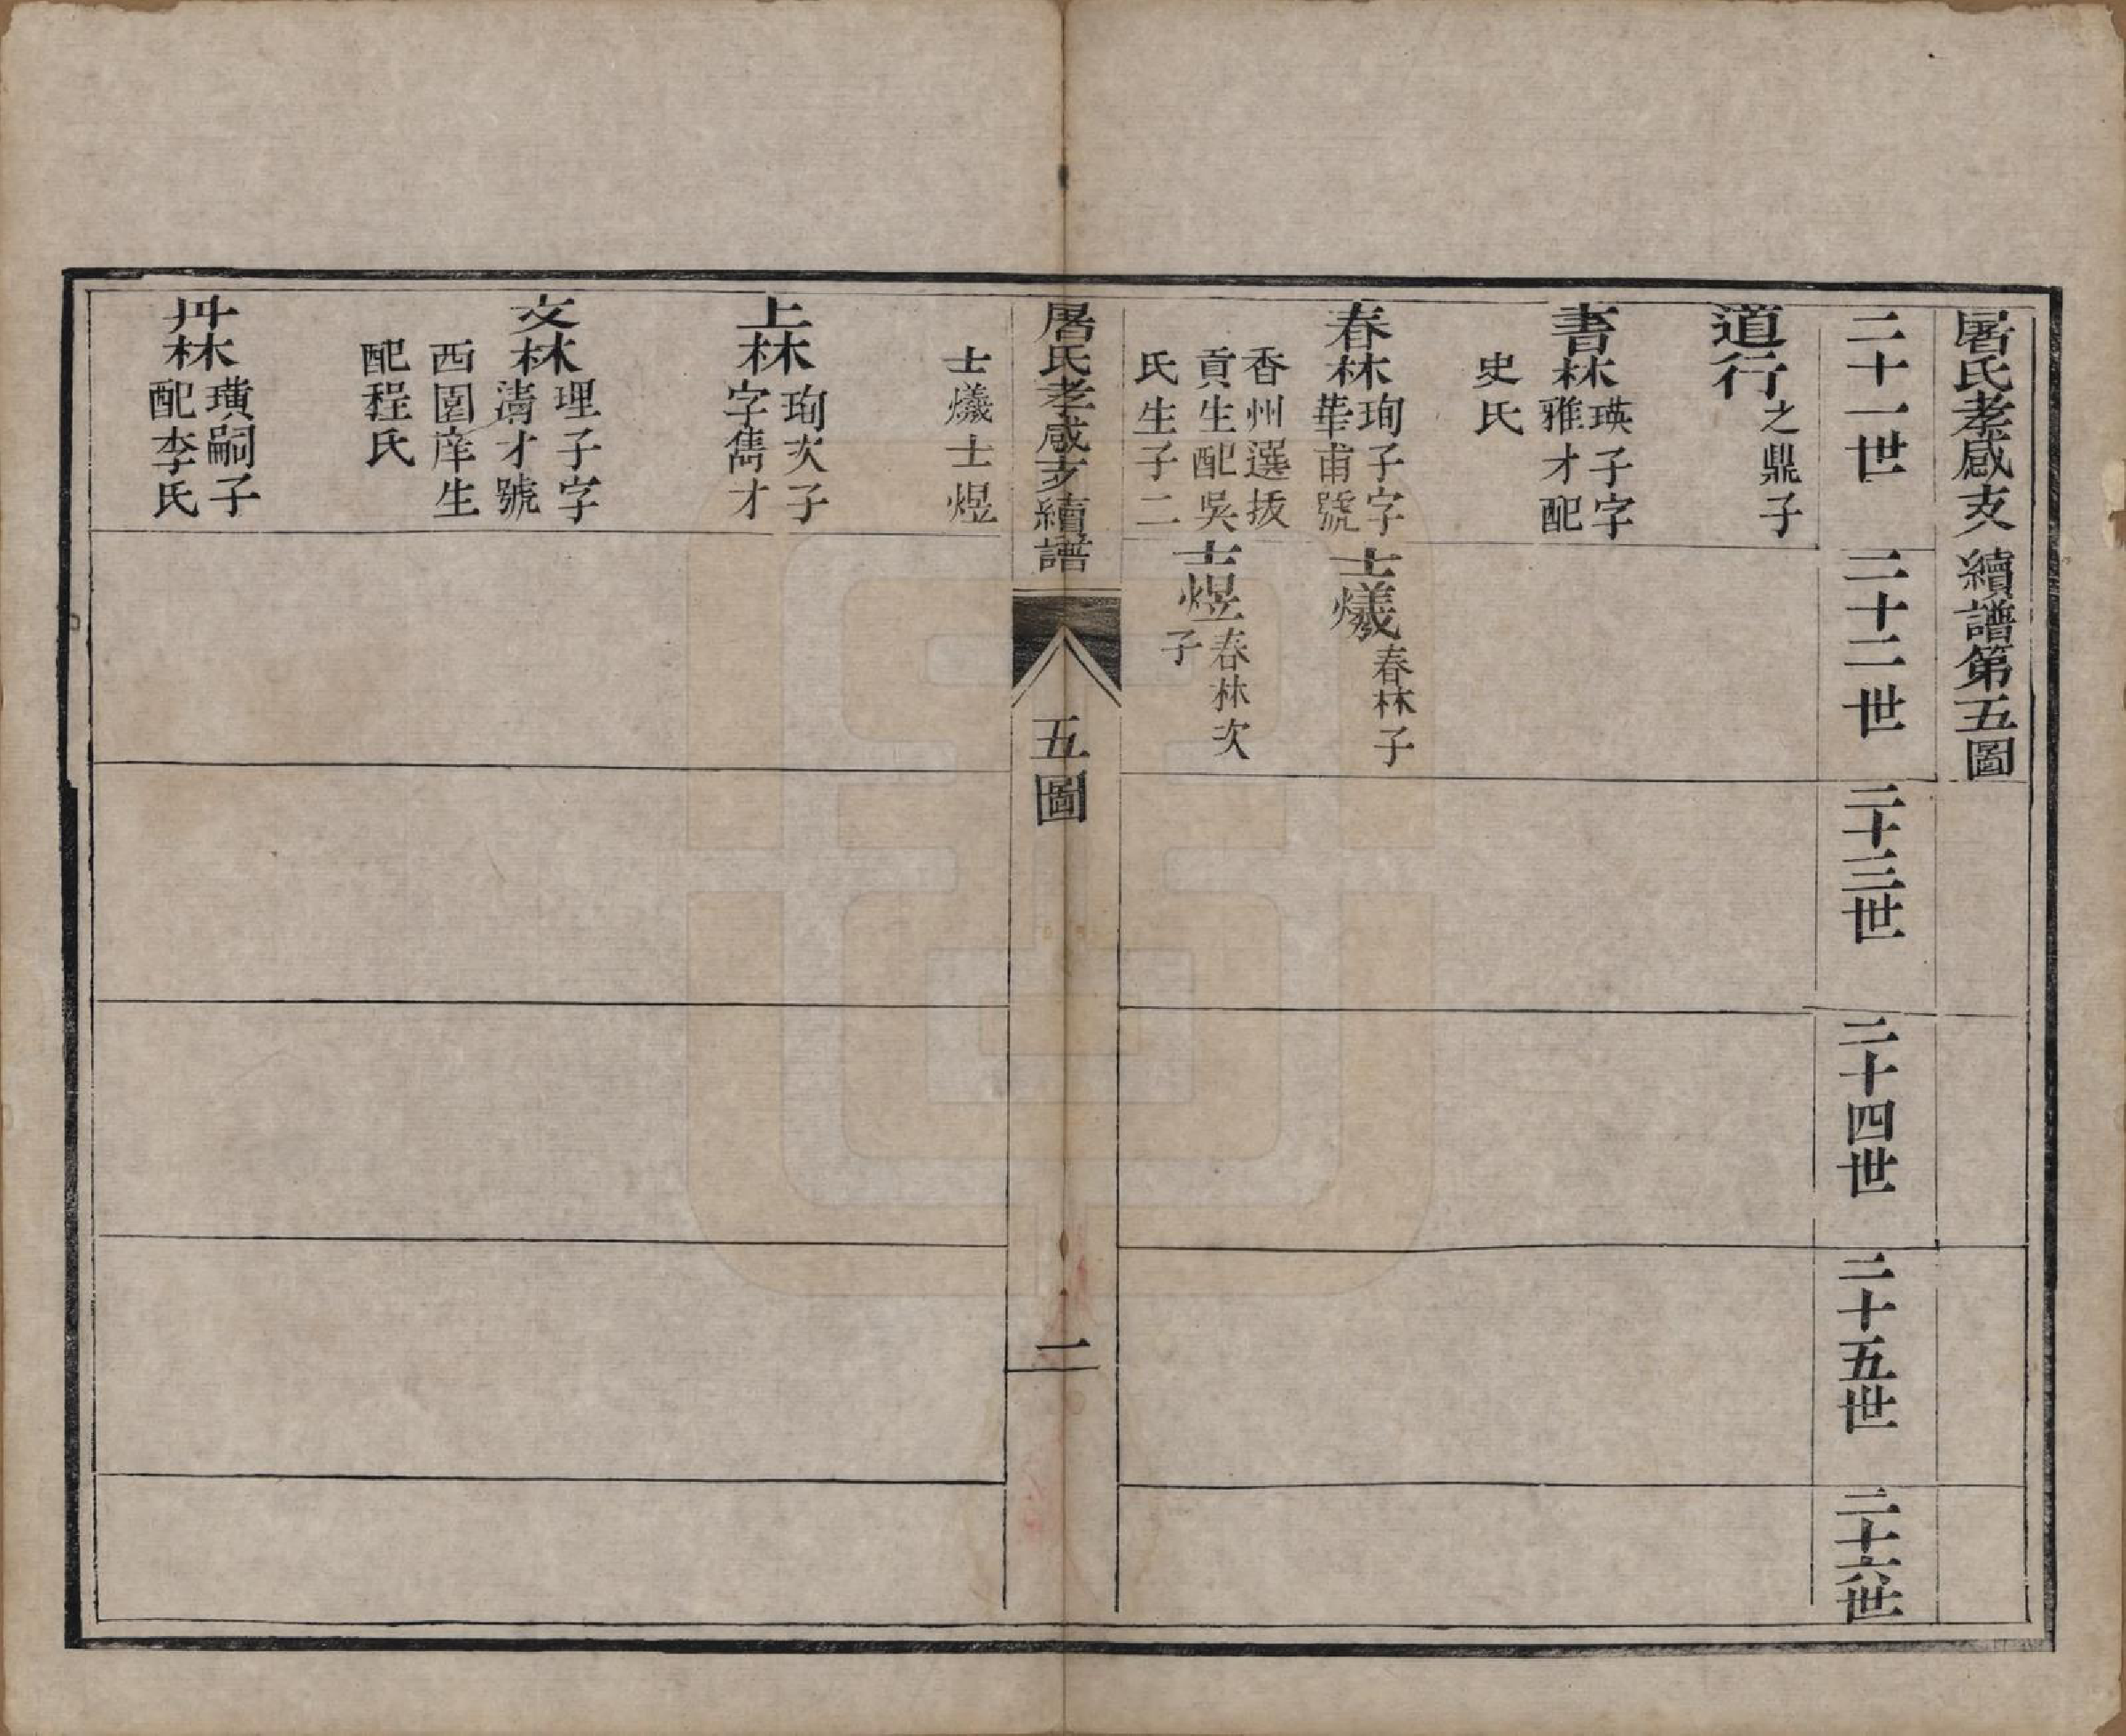 屠氏孝感支續譜第五圖
二十一世
二十二世
二十三世
二十四世
二十五世
二十六世
道行
之鼎子
書林
瑛子字
雅才配
史氏
春林
珣子字
華甫號
香州選拔
貢生配吳
氏生子二
士爔
春林子
士煜
春林次
子
屠氏孝感支續譜
五圖
二
士爔士煜
上林
珣次子
字雋才
文林
理子字
清才號
西園庠生
配程氏
丹林
璜嗣子
配李氏